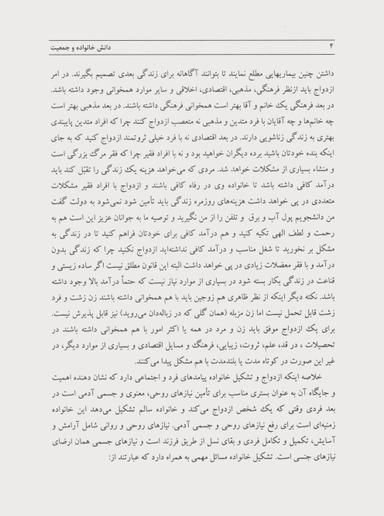 ۴
دانش خانواده و جمعیت
داشتن چنین بیماریهایی مطلع نمایند تا بتوانند آگاهانه برای زندگی بعدی تصمیم بگیرند. در امر
ازدواج باید ازنظر فرهنگی، مذهبی، اقتصادی، اخلاقی و سایر موارد همخوانی وجود داشته باشد.
در بعد فرهنگی یک خانم و آقا بهتر است همخوانی فرهنگی داشته باشند. در بعد مذهبی بهتر است
چه خانم‌ها و چه آقایان با فرد متدین و مذهبی نه متعصب ازدواج کنند چرا که افراد متدین پایبندی
بهتری به زندگی زناشویی دارند. در بعد اقتصادی نه با فرد خیلی ثروتمند ازدواج کنید که به جای
اینکه بنده خودتان باشید برده دیگران خواهید بود و نه با افراد فقیر چرا که فقر مرگ بزرگی است
و منشاء بسیاری از مشکلات خواهد شد. مردی که می‌خواهد هزینه یک زندگی را تقبّل کند باید
درآمد کافی داشته باشد تا خانواده وی در رفاه کافی باشند و ازدواج با افراد فقیر مشکلات
متعددی در پی خواهد داشت هزینه‌های روزمره زندگی باید تأمین شود نمی‌شود به دولت گفت
من دانشجویم پول آب و برق و تلفن را از من نگیرید و توصیه ما به جوانان عزیز این است هم به
رحمت و لطف الهی تکیه کنید و هم درآمد کافی برای خودتان فراهم کنید تا در زندگی به
مشکل بر نخورید تا شغل مناسب و درآمد کافی نداشته‌اید ازدواج نکنید چرا که زندگی بدون
درآمد و با فقر معضلات زیادی در پی خواهد داشت البته این قانون مطلق نیست اگر ساده زیستی و
قناعت در زندگی بکار بسته شود در بسیاری از موارد نیاز نیست که حتماً درآمد بالا وجود داشته
باشد. نکته دیگر اینکه از نظر ظاهری هم زوجین باید با هم همخوانی داشته باشند. زن زشت و فرد
زشت قابل تحمل نیست اما زن مزبله (همان گلی که در زباله‌دان می‌روید) نیز قابل پذیرش نیست.
برای یک ازدواج موفق باید زن و مرد در همه یا اکثر امور با هم همخوانی داشته باشند در
تحصیلات، در قد، علم، ثروت، زیبایی، فرهنگ و مسایل اقتصادی و بسیاری از موارد دیگر، در
غیر این صورت در کوتاه مدت یا بلندمدت با هم مشکل پیدا می‌کنند.
خلاصه اینکه ازدواج و تشکیل خانواده پیامدهای فرد و اجتماعی دارد که نشان دهنده اهمیت
و جایگاه آن به عنوان بستری مناسب برای تأمین نیازهای روحی، معنوی و جسمی آدمی است در
بعد فردی وقتی که یک شخص ازدواج می‌کند و خانواده سالم تشکیل می‌دهد این خانواده
زمینه‌ای است برای رفع نیازهای روحی و جسمی آدمی. نیازهای روحی و روانی شامل آرامش و
آسایش، تکمیل و تکامل فردی و بقای نسل از طریق فرزند است و نیازهای جسمی همان ارضای
نیازهای جنسی است. تشکیل خانواده مسائل مهمی به همراه دارد که عبارتند از: